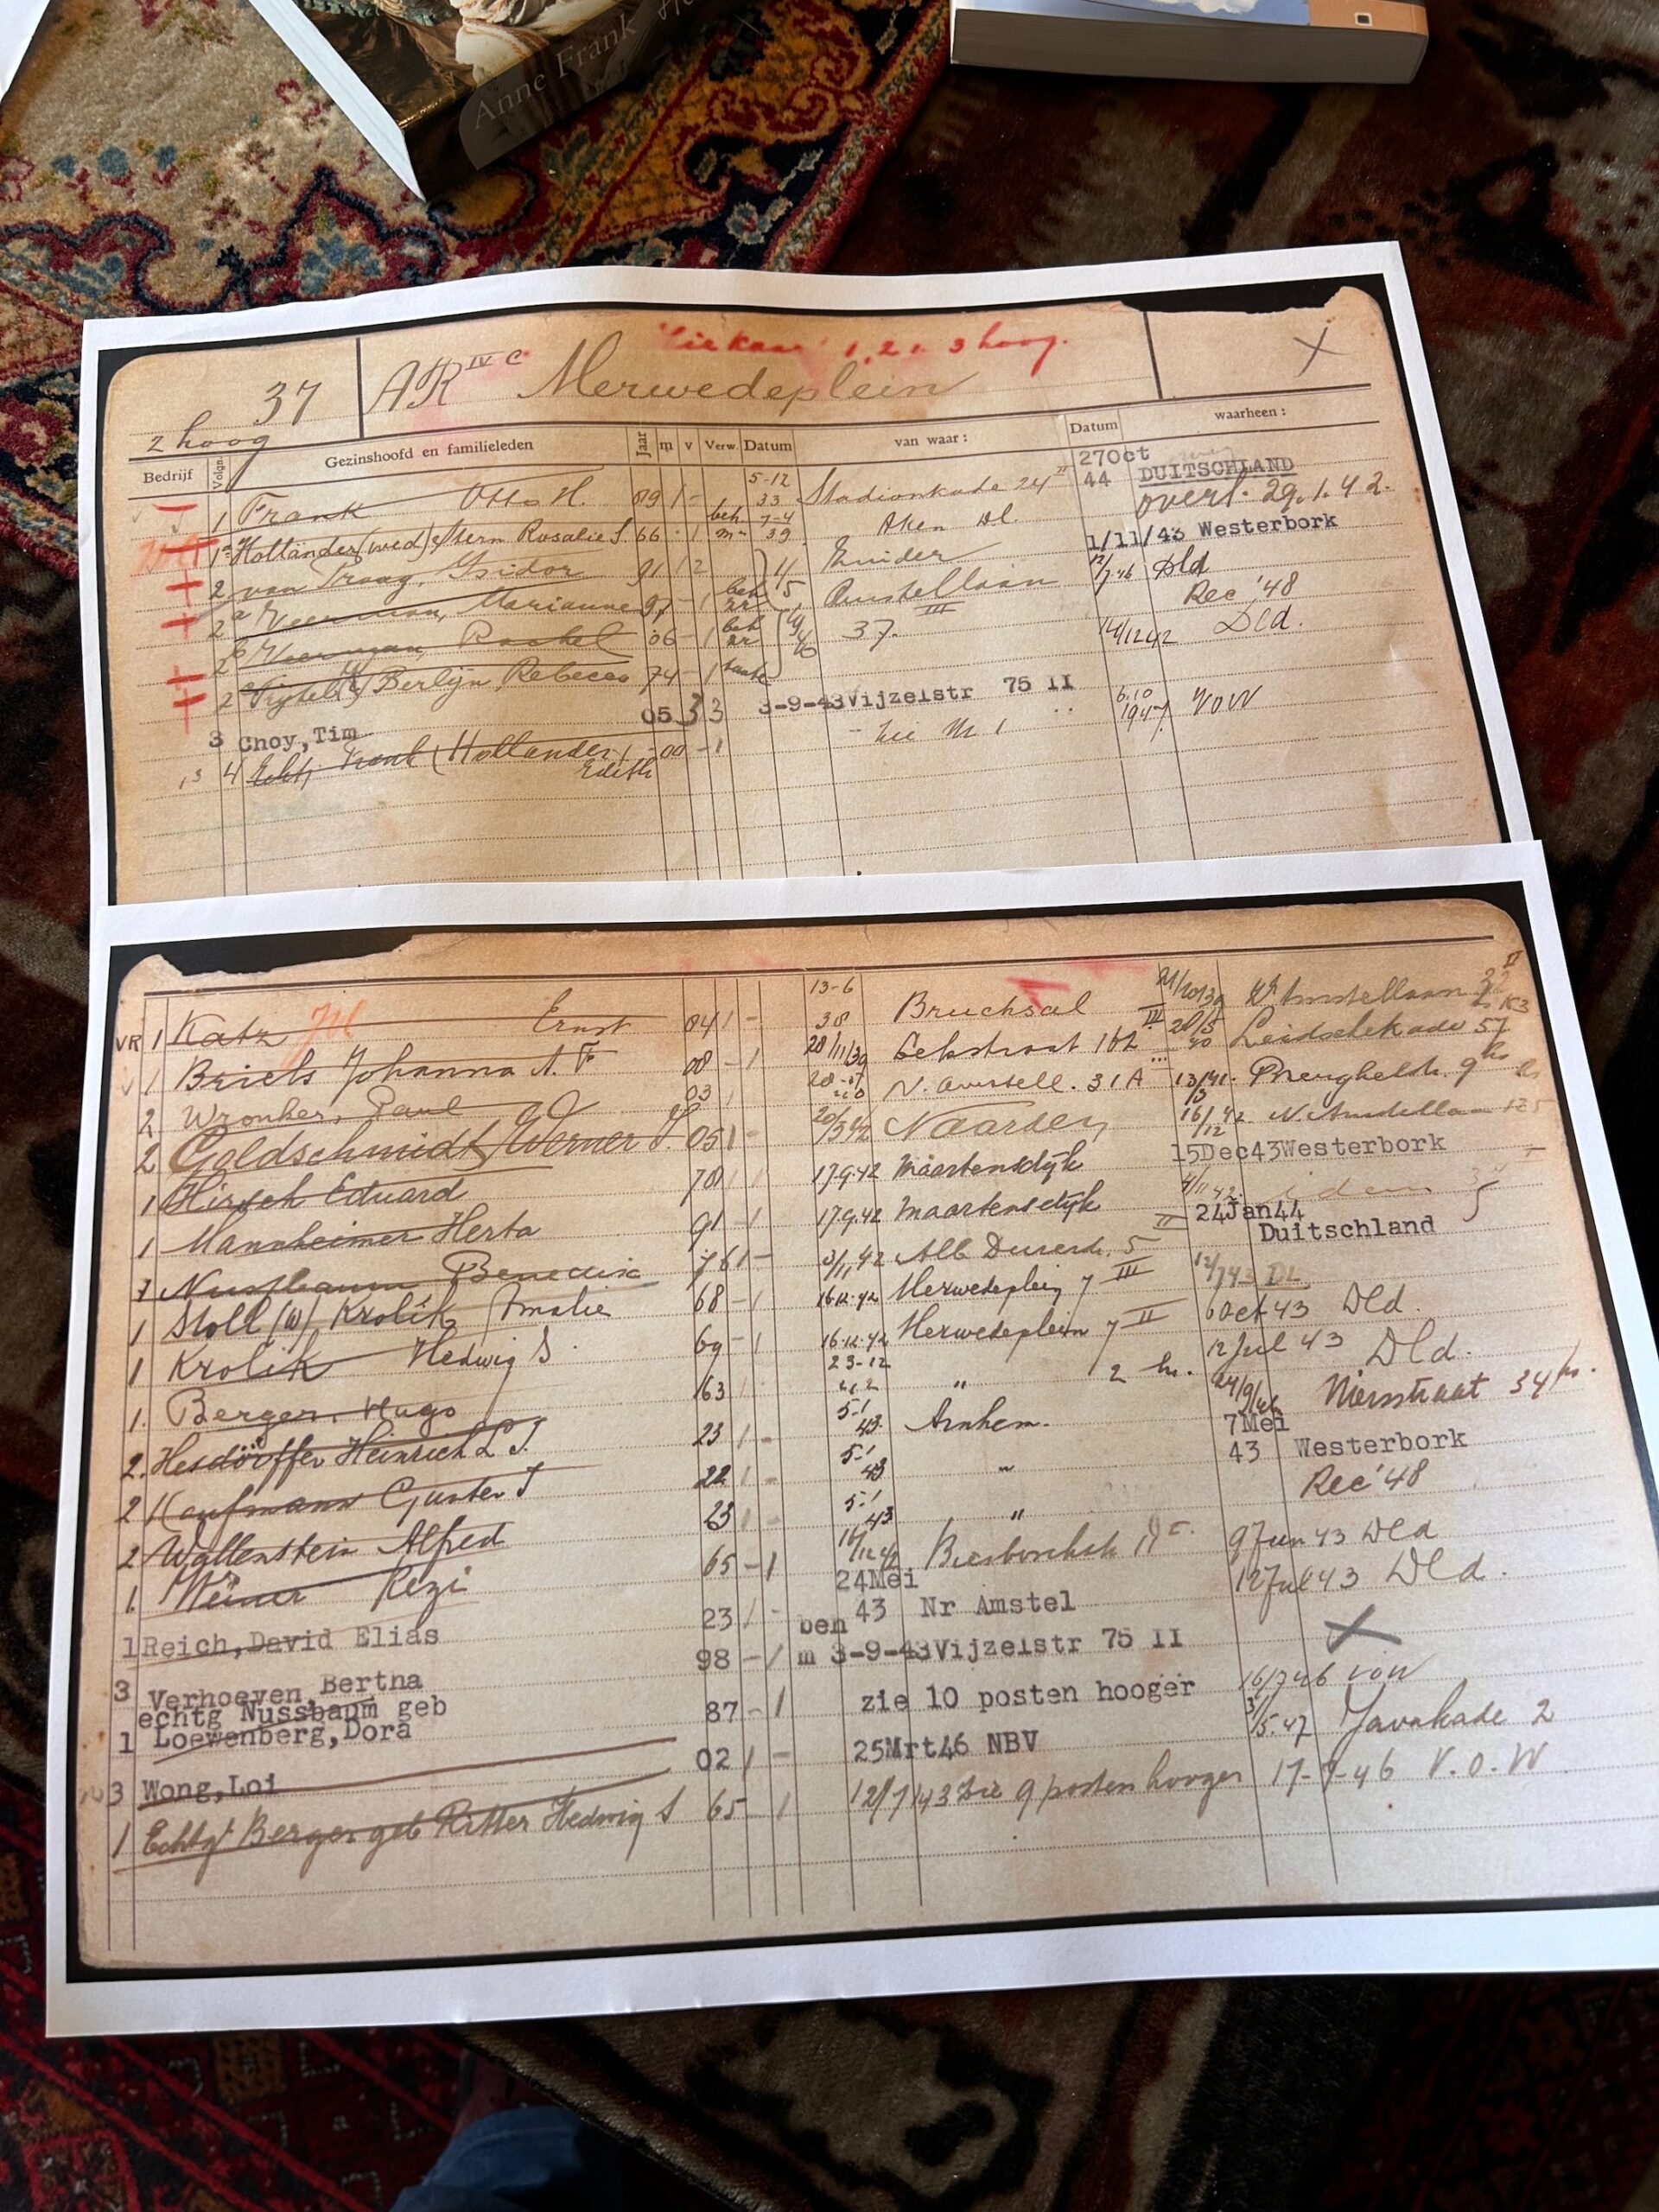 Anne Frank
1, 2 en 3 hoog.
37 AR IV C Merwedeplein
2 hoog
Bedrijf Volgn. Gezinshoofd en familieleden Jaar m v Verw. Datum van waar: Datum waarheen:
1 Frank Otto H. 89 1 - 5-12 33 Stadionkade 24 II 27Oct 44 DUITSCHLAND
1a Holländer (wed) Stern Rosalie S. 66 - 1 beh m 7-4 39 Aken Dl. overl. 29.1.42.
2 van Praag, Isidor 91 1 2 1/11/43 Westerbork
2a Veerman, Marianne 97 - 1 beh zr Amstellaan Dld
2b Veerman, Rachel 06 - 1 beh zr 37. III Rec '48
2 Berlijn, Rebecca 74 - 1 tante 14/12 42 Dld.
3 Choy, Tim 05 3 3 3-9-43 Vijzelstr 75 II 6.10 1947 VOW
4 Echtg Frank (Hollander) Edith 00 - 1 zie N 1
VR 1 Katz Ernst 04 1 - 13-6 38 Bruchsal 21/10 39
1 Briels Johanna A. F 08 - 1 28/11/39 Eekstraat III Leidschekade 57
2 Wronker, Paul 03 1 N. Amstell. 31A 13/3 41.
2 Goldschmidt, Werner J. 05 1 - 20/3 42 Naarden 16/12 42 N. Amstellaan
1 Hirsch Eduard 78 1 17.9.42 Maartensdijk 15Dec43 Westerbork
1 Mannheimer Herta 91 - 1 17.9.42 Maartensdijk II 4/11 42. idem
1 Nussbaum Benedikt 76 1 - 3/11 42 Alb Durerstr. 5 24Jan44 Duitschland
1 Stoll (w) Krolik, Amalie 68 - 1 16.12.42 Merwedeplein 7 III 12/7 43 DL
1 Krolik Hedwig S. 69 - 1 16.12.42 Merwedeplein 7 II 6 Oct 43 Dld.
1. Berger, Hugo 63 1 23-12 " 2 h. 12 Jul 43 Dld.
2. Hesdörffer Heinrich L J. 23 1 - 5-1 43. Arnhem. Nierstraat 34
2 Kaufmann Gunter J 22 1 - 5-1 43 " 7Mei 43 Westerbork
2 Wallenstein Alfred 23 1 - 5-1 43 " Rec '48
1. Weiner Rezi 65 - 1 9 Jun 43 Dld
1 Reich, David Elias 23 1 - 24Mei 43 Nr Amstel 12 Jul 43 Dld.
3 Verhoeven, Bertha 98 - 1 ben m 3-9-43 Vijzelstr 75 II
1 echtg Nussbaum geb Loewenberg, Dora 87 - 1 zie 10 posten hooger 16/7 46 VOW
3 Wong, Loi 02 1 - 25Mrt46 NBV 3/5.47 Javakade 2
1 Echtgt Berger geb Ritter Hedwig S 65 - 1 12/7/43 Zie 9 posten hooger 17-9-46 V.O.W